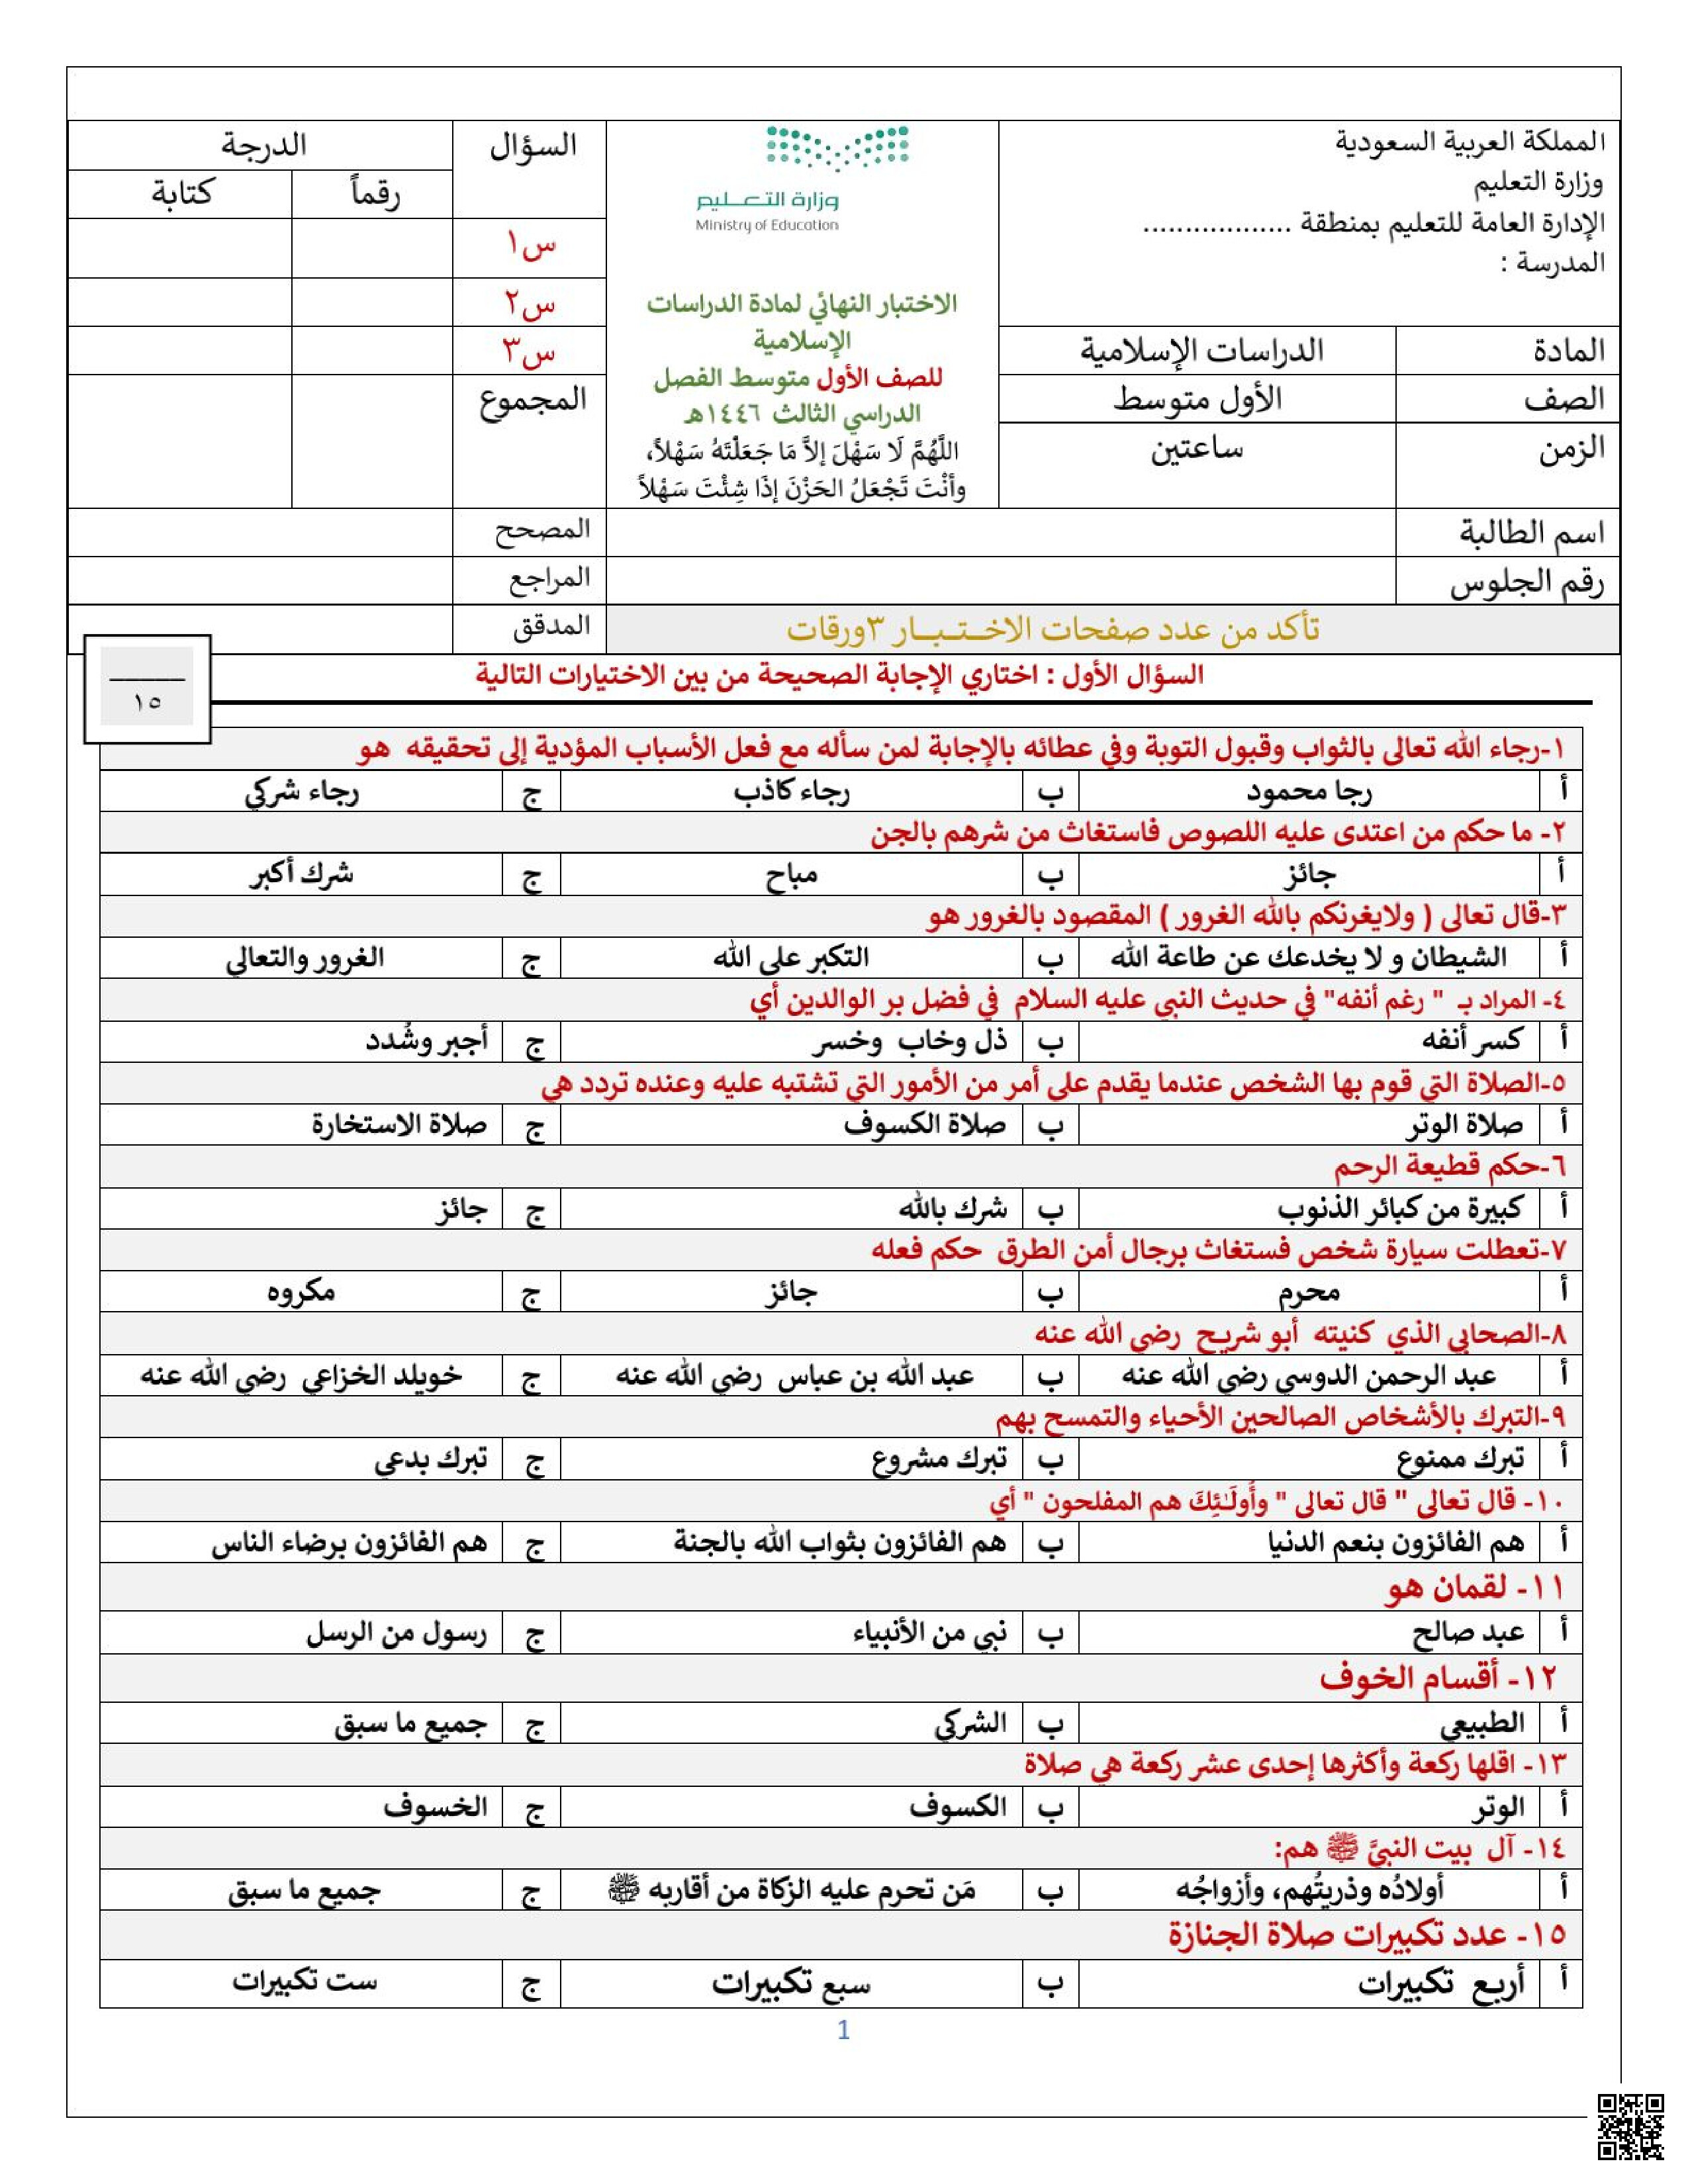 المملكة العربية السعودية
وزارة التعليم
الإدارة العامة للتعليم بمنطقة ..................
المدرسة :
المادة
الدراسات الإسلامية
الصف
الأول متوسط
الزمن
ساعتين
وزارة التعليم
Ministry of Education
الاختبار النهائي لمادة الدراسات
الإسلامية
للصف الأول متوسط الفصل
الدراسي الثالث ١٤٤٦هـ
اللَّهُمَّ لَا سَهْلَ إلاَّ مَا جَعَلْتَهُ سَهْلاً،
وأنْتَ تَجْعَلُ الحَزْنَ إذَا شِئْتَ سَهْلاً
السؤال
الدرجة
رقماً
كتابة
س١
س٢
س٣
المجموع
اسم الطالبة
المصحح
رقم الجلوس
المراجع
تأكد من عدد صفحات الاختبار ٣ورقات
المدقق
السؤال الأول : اختاري الإجابة الصحيحة من بين الاختيارات التالية
١٥
١-رجاء الله تعالى بالثواب وقبول التوبة وفي عطائه بالإجابة لمن سأله مع فعل الأسباب المؤدية إلى تحقيقه هو
أ رجا محمود ب رجاء كاذب ج رجاء شركي
٢- ما حكم من اعتدى عليه اللصوص فاستغاث من شرهم بالجن
أ جائز ب مباح ج شرك أكبر
٣-قال تعالى ( ولايغرنكم بالله الغرور ) المقصود بالغرور هو
أ الشيطان و لا يخدعك عن طاعة الله ب التكبر على الله ج الغرور والتعالي
٤- المراد بـ " رغم أنفه" في حديث النبي عليه السلام في فضل بر الوالدين أي
أ كسر أنفه ب ذل وخاب وخسر ج أجبر وشُدد
٥-الصلاة التي قوم بها الشخص عندما يقدم على أمر من الأمور التي تشتبه عليه وعنده تردد هي
أ صلاة الوتر ب صلاة الكسوف ج صلاة الاستخارة
٦-حكم قطيعة الرحم
أ كبيرة من كبائر الذنوب ب شرك بالله ج جائز
٧-تعطلت سيارة شخص فستغاث برجال أمن الطرق حكم فعله
أ محرم ب جائز ج مكروه
٨-الصحابي الذي كنيته أبو شريح رضي الله عنه
أ عبد الرحمن الدوسي رضي الله عنه ب عبد الله بن عباس رضي الله عنه ج خويلد الخزاعي رضي الله عنه
٩-التبرك بالأشخاص الصالحين الأحياء والتمسح بهم
أ تبرك ممنوع ب تبرك مشروع ج تبرك بدعي
١٠- قال تعالى " قال تعالى " وأُولَـٰئِكَ هم المفلحون " أي
أ هم الفائزون بنعم الدنيا ب هم الفائزون بثواب الله بالجنة ج هم الفائزون برضاء الناس
١١- لقمان هو
أ عبد صالح ب نبي من الأنبياء ج رسول من الرسل
١٢- أقسام الخوف
أ الطبيعي ب الشركي ج جميع ما سبق
١٣- اقلها ركعة وأكثرها إحدى عشر ركعة هي صلاة
أ الوتر ب الكسوف ج الخسوف
١٤- آل بيت النبيَّ ﷺ هم:
أ أولادُه وذريتُهم، وأزواجُه ب مَن تحرم عليه الزكاة من أقاربه ﷺ ج جميع ما سبق
١٥- عدد تكبيرات صلاة الجنازة
أ أربع تكبيرات ب سبع تكبيرات ج ست تكبيرات
1